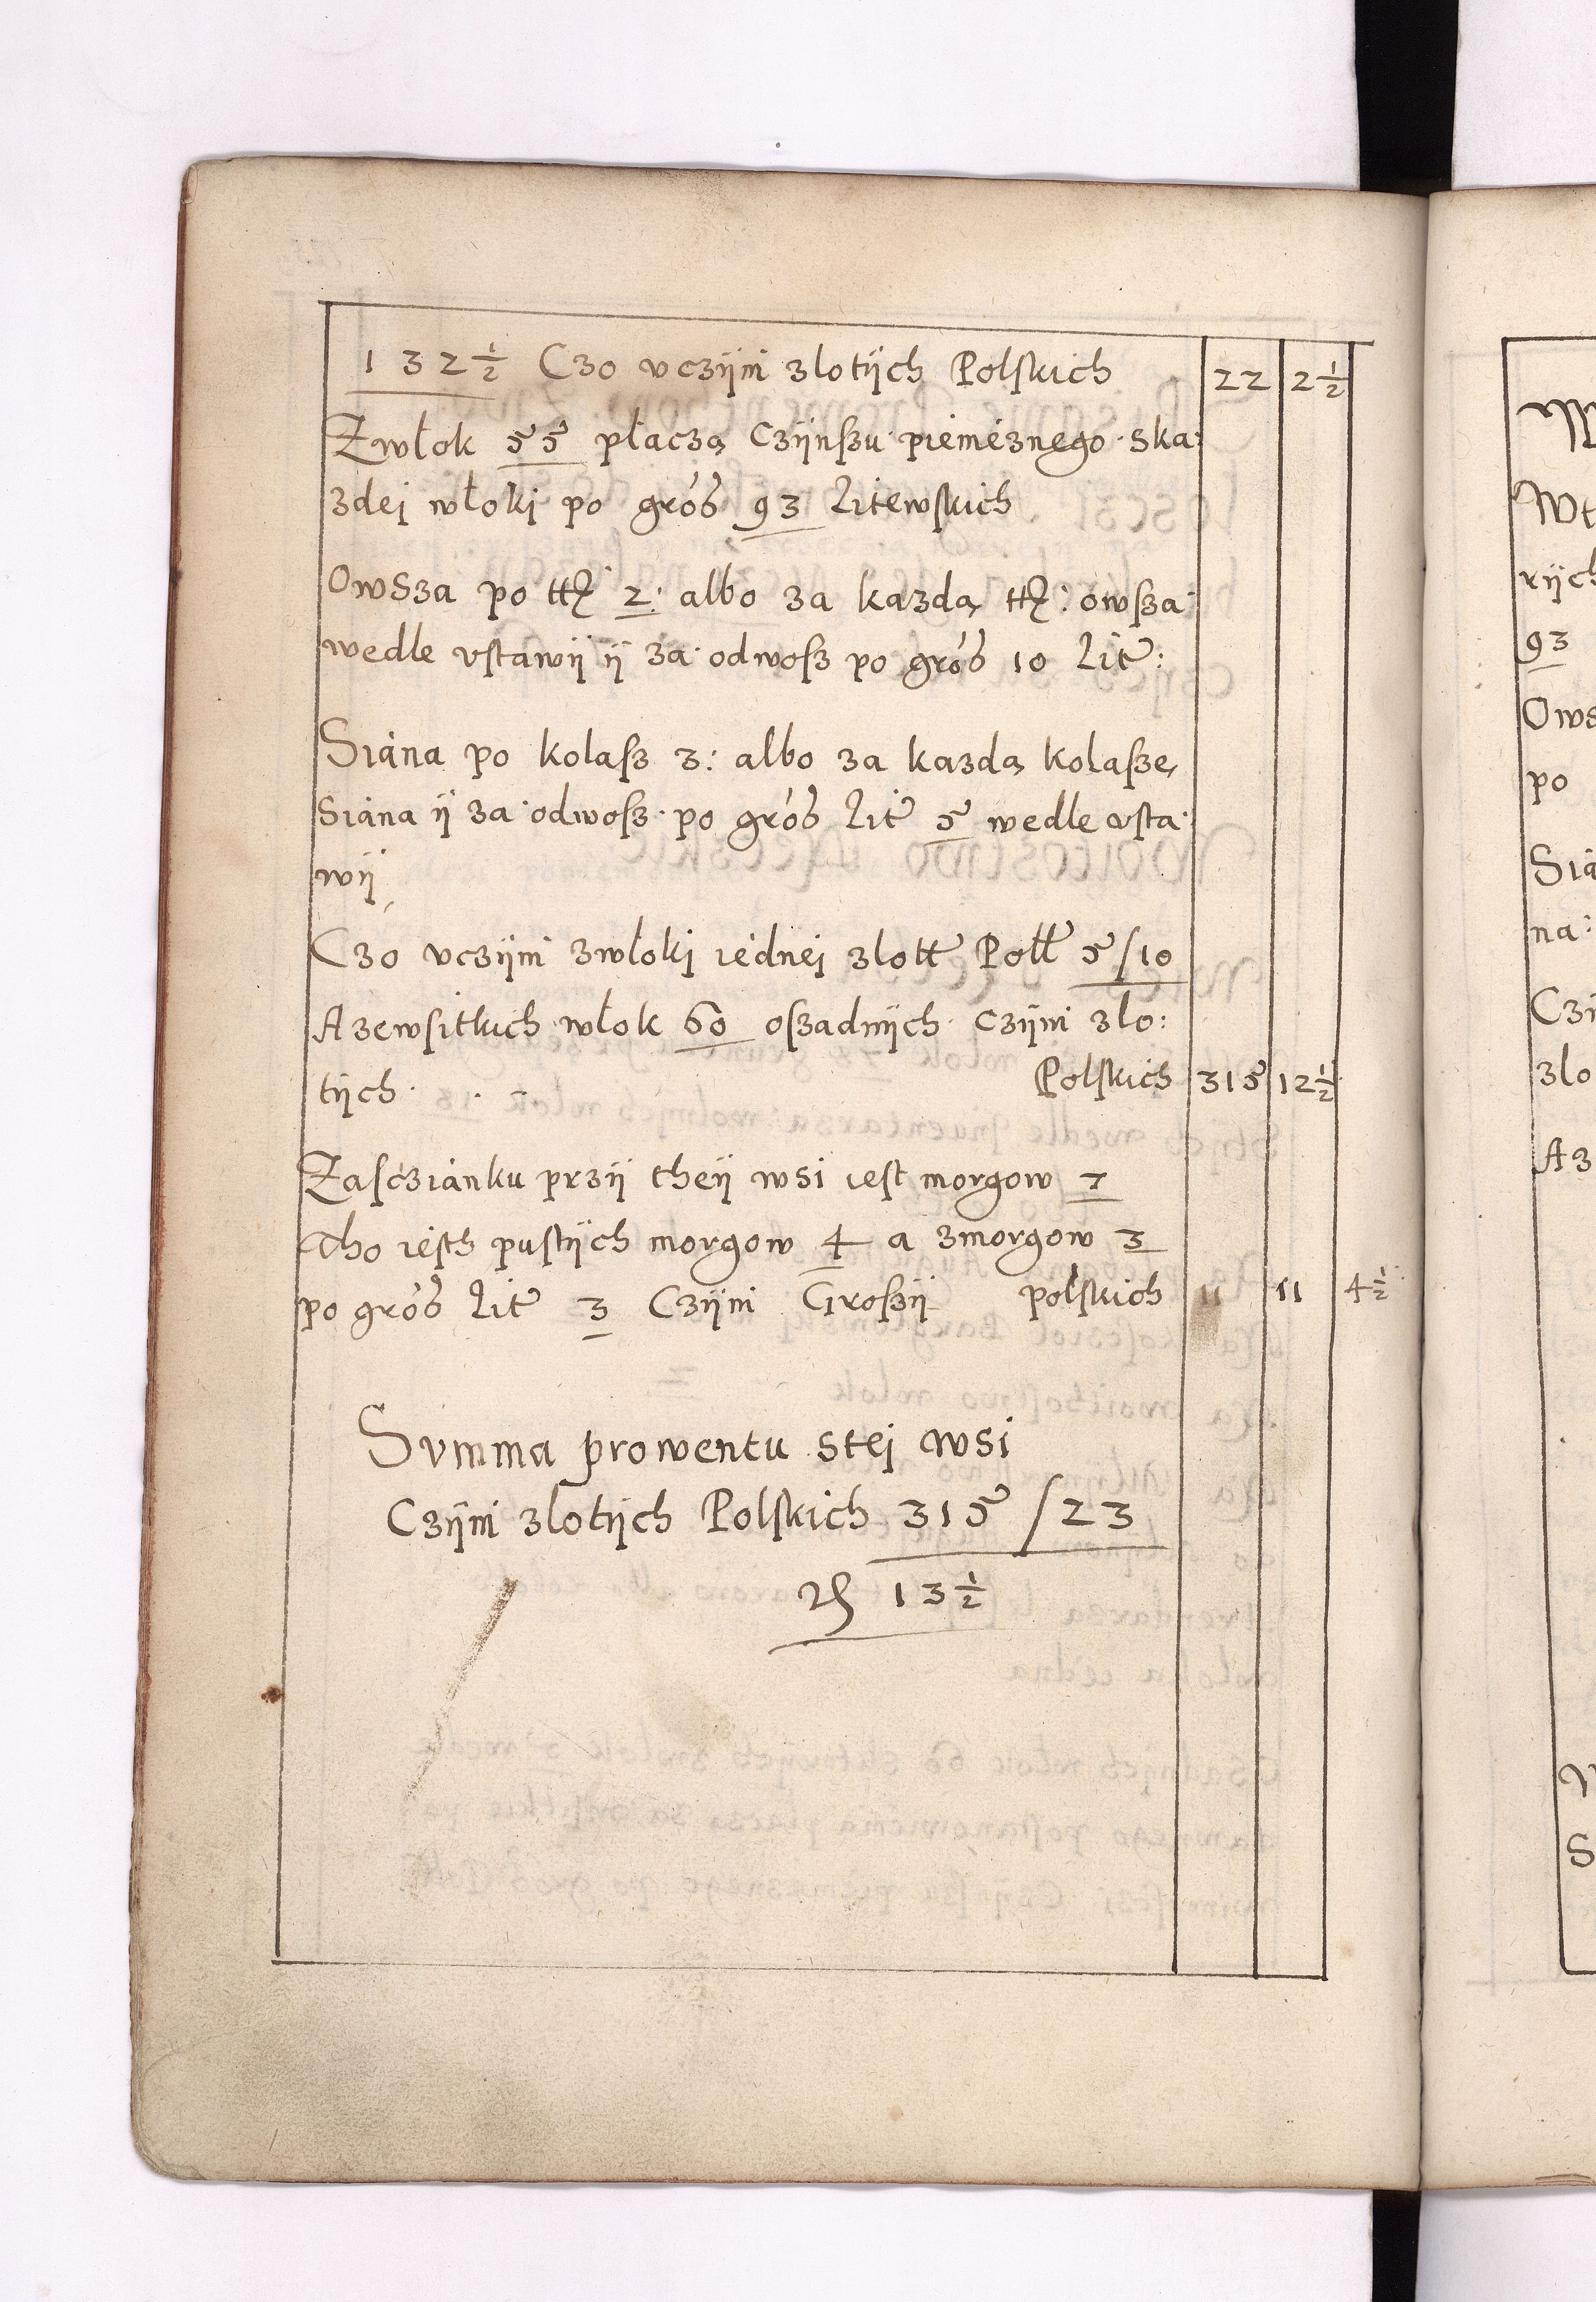 132½ Czo vczÿni zlotÿch Polskich 22 2½
Zwłok 55 płaczą Czÿnszu pieniėznego ska:
zdej włokj po groß 93 Litewskich
Owsza po 2: albo za kazdą owsza
wedle vstawÿ ÿ za odwosz po groß 10 Lit:
Siana po kolasz 3: albo za kazdą kolaszę
siana ÿ za odwosz po groß Lit 5 wedle vsta
wÿ
Czo vczÿni zwłokj iednej zlott Poll 5/10
Azewsitkich włok 60 oszadnÿch Czÿni zlo:
tÿch Polskich 315 12½
Zasczianku przÿ theÿ wsi iest morgow 7
Tho iesth pustÿch morgow 4 a zmorgow 3
po groß Lit 3 Czÿni Groszÿ polskich 11 11 4½
Svmma prowentu stej wsi
Czÿni zlotÿch Polskich 315/23
13½
93
Ows
po
Sia
na:
zlo
Az